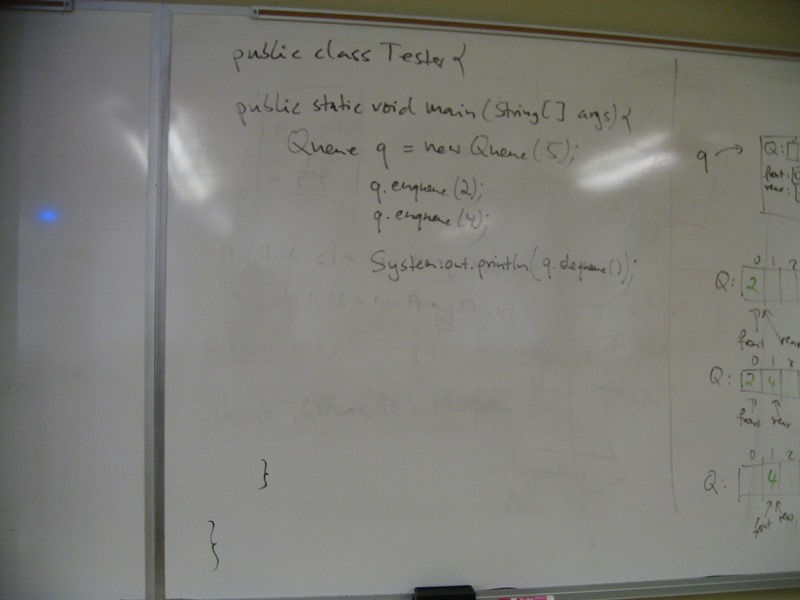 public class Tester{
public static void main (String[] args){
Queue q = new Queue(5);
q.enqueue(2);
q.enqueue(4);
System.out.println( q.dequeue());
}
}
q → Q:
front:
rear:
0 1 2
Q: 2
front rear
0 1 2
Q: 2 4
front rear
0 1 2
Q: 4
front rear